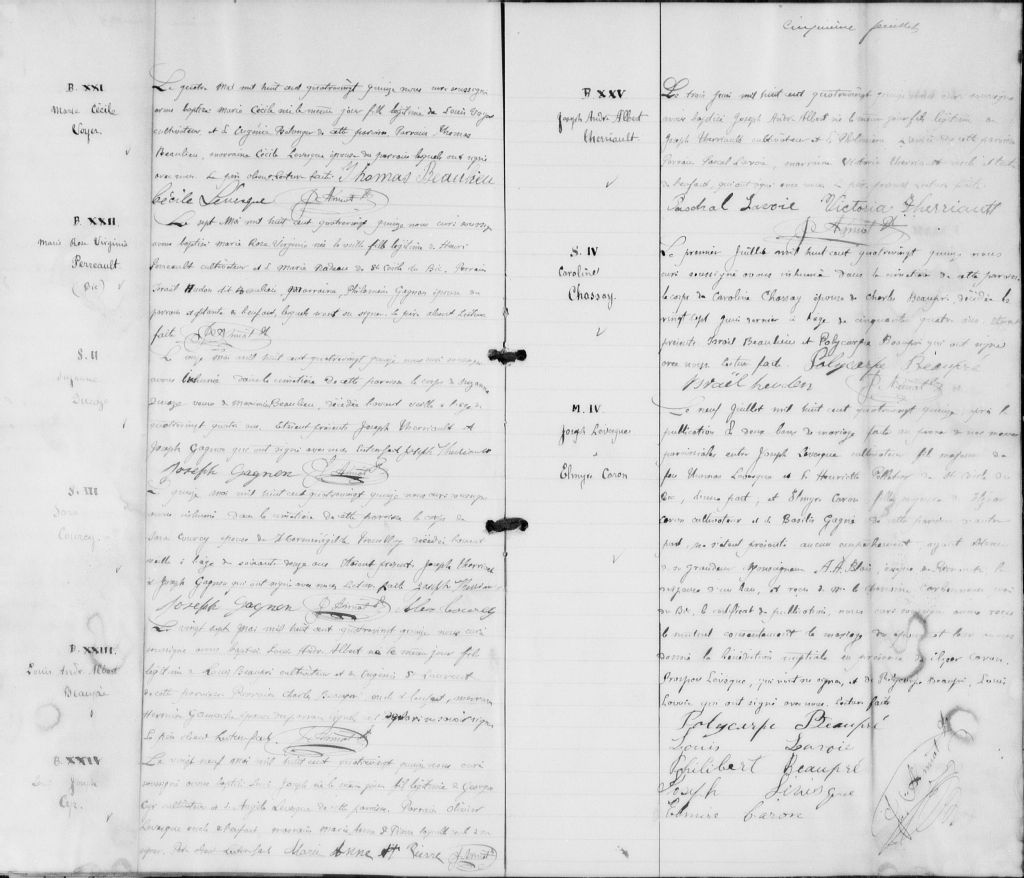 B. XXI
Marie Cécile
Voyer
Le quatre Mai mil huit cent quatrevingt quinze nous curé soussigné
avons baptisé Marie Cécile née le même jour fille légitime de Louis Voyer
cultivateur et de Eugénie de cette paroisse. Parrain Thomas
Beaulieu, marraine Cécile Levesque épouse du parrain lesquels ont signé
avec nous. Le père absent. Lecture faite. Thomas Beaulieu
Cécile Levesque
B. XXII
Marie Rose Virginie
Perreault
(Bic)
Le sept Mai mil huit cent quatrevingt quinze nous curé soussigné
avons baptisé Marie Rose Virginie née la veille fille légitime de Henri
Perreault cultivateur et de Marie Nadeau de Ste Cécile du Bic. Parrain
Israël Hudon dit Beaulieu, Marraine, Philomène Gagnon épouse du
parrain et tante de l'enfant, lesquels n'ont su signer. Le père absent Lecture
faite.
S. II
Suzanne
Le onze Mai mil huit cent quatrevingt quinze nous curé soussigné
avons inhumé dans le cimetière de cette paroisse le corps de Suzanne
veuve de Beaulieu, décédée l'avant veille à l'âge de
quatrevingt quatre ans. Etaient présents Joseph Therriault et
Joseph Gagnon qui ont signé avec nous. Lecture faite Joseph Theriault
Joseph Gagnon
S. III
Sara
Courcy
Le quinze Mai mil huit cent quatrevingt quinze nous curé soussigné
avons inhumé dans le cimetière de cette paroisse le corps de
Sara Courcy épouse de Herménégilde Trembley décédée l'avant
veille à l'âge de soixante douze ans. Etaient présents Joseph Therriault
et Joseph Gagnon qui ont signé avec nous. Lecture faite Joseph Theriault
Joseph Gagnon
B. XXIII.
Louis André Albert
Beaupré
Le vingt sept Mai mil huit cent quatrevingt quinze nous curé
soussigné avons baptisé Louis André Albert né le même jour fils
légitime de Louis Beaupré cultivateur et de Eugénie St Laurent
de cette paroisse. Parrain Charles Beaupré, oncle de l'enfant, marraine
Herminie épouse du parrain lesquels ont déclaré ne savoir signer
Le père absent. Lecture faite.
B. XXIV
Louis Joseph
Cyr.
Le vingt neuf Mai mil huit cent quatrevingt quinze nous curé
soussigné avons baptisé Louis Joseph né le même jour fils légitime de Georges
Cyr cultivateur et de Angèle Levesque de cette paroisse. Parrain Olivier
Levesque oncle de l'enfant, marraine Marie Anne St Pierre laquelle a
signé. Lecture faite Marie Anne St Pierre
Cinquième feuillet
B XXV
Joseph André Albert
Therriault
Le trois Juin mil huit cent quatrevingt quinze nous curé soussigné
avons baptisé Joseph André Albert né le même jour fils légitime de
Joseph Therriault cultivateur et de Philomène Lavoie de cette paroisse
Parrain Pascal Lavoie, marraine Victoria Therriault oncle et tante
de l'enfant, qui ont signé avec nous. Le père présent. Lecture faite.
Paschal Lavoie Victoria Therriault
S. IV
Caroline
Chassay.
Le premier Juillet mil huit cent quatrevingt quinze nous
curé soussigné avons inhumé dans le cimetière de cette paroisse
le corps de Caroline Chassay épouse de Charles Beaupré, décédée le
vingt sept Juin dernier à l'âge de cinquante quatre ans. Etaient
présents Israël Beaulieu et Polycarpe Beaupré qui ont signé
avec nous. Lecture faite. Polycarpe Beaupré
Israël heudon
M. IV.
Joseph Levesque
&
Elmyre Caron
Le neuf Juillet mil huit cent quatrevingt quinze, après la
publication de deux bans de mariage faite au prône de nos messes
paroissiales entre Joseph Levesque cultivateur fils majeur de
feu Thomas Levesque et de Henriette Pelletier de Ste Cécile du
Bic, d'une part; et Elmyre Caron fille mineure de Elzéar
Caron cultivateur et de Basilisse Gagné de cette paroisse d'autre
part, ne s'étant présenté aucun empêchement, ayant obtenu
de sa grandeur Monseigneur A.A. Blais évêque de Rimouski la
dispense d'un ban, et reçu de Mr le Chanoine curé
du Bic, le certificat de publication, nous curé soussigné avons reçu
le mutuel consentement de mariage des époux et leur avons
donné la bénédiction nuptiale en présence de Elzéar Caron,
Prosper Levesque, qui n'ont su signer, et de Polycarpe Beaupré, Louis
Lavoie qui ont signé avec nous. Lecture faite
Polycarpe Beaupré
Louis Lavoie
Philibert Beaupré
Joseph Lévesque
Elmire Caron